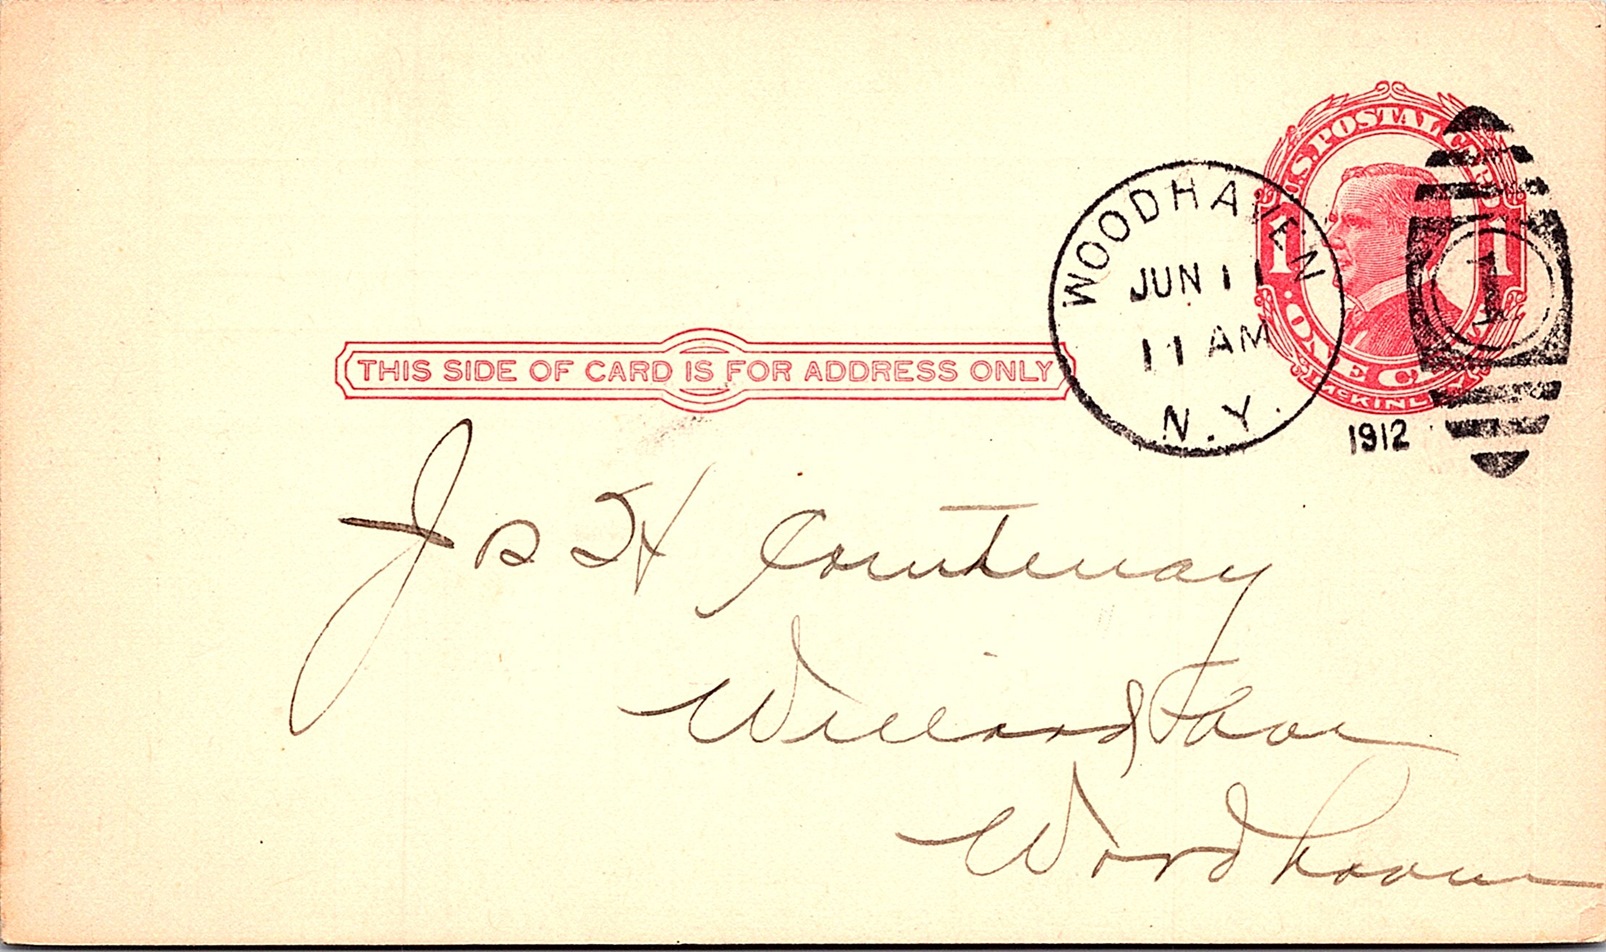 U.S. POSTAL
1 1
· ONE C
McKINL
WOODHAVEN
JUN 11
11 AM
N.Y.
1912
1
THIS SIDE OF CARD IS FOR ADDRESS ONLY
Jas H Courtenay
Willard
Woodhaven